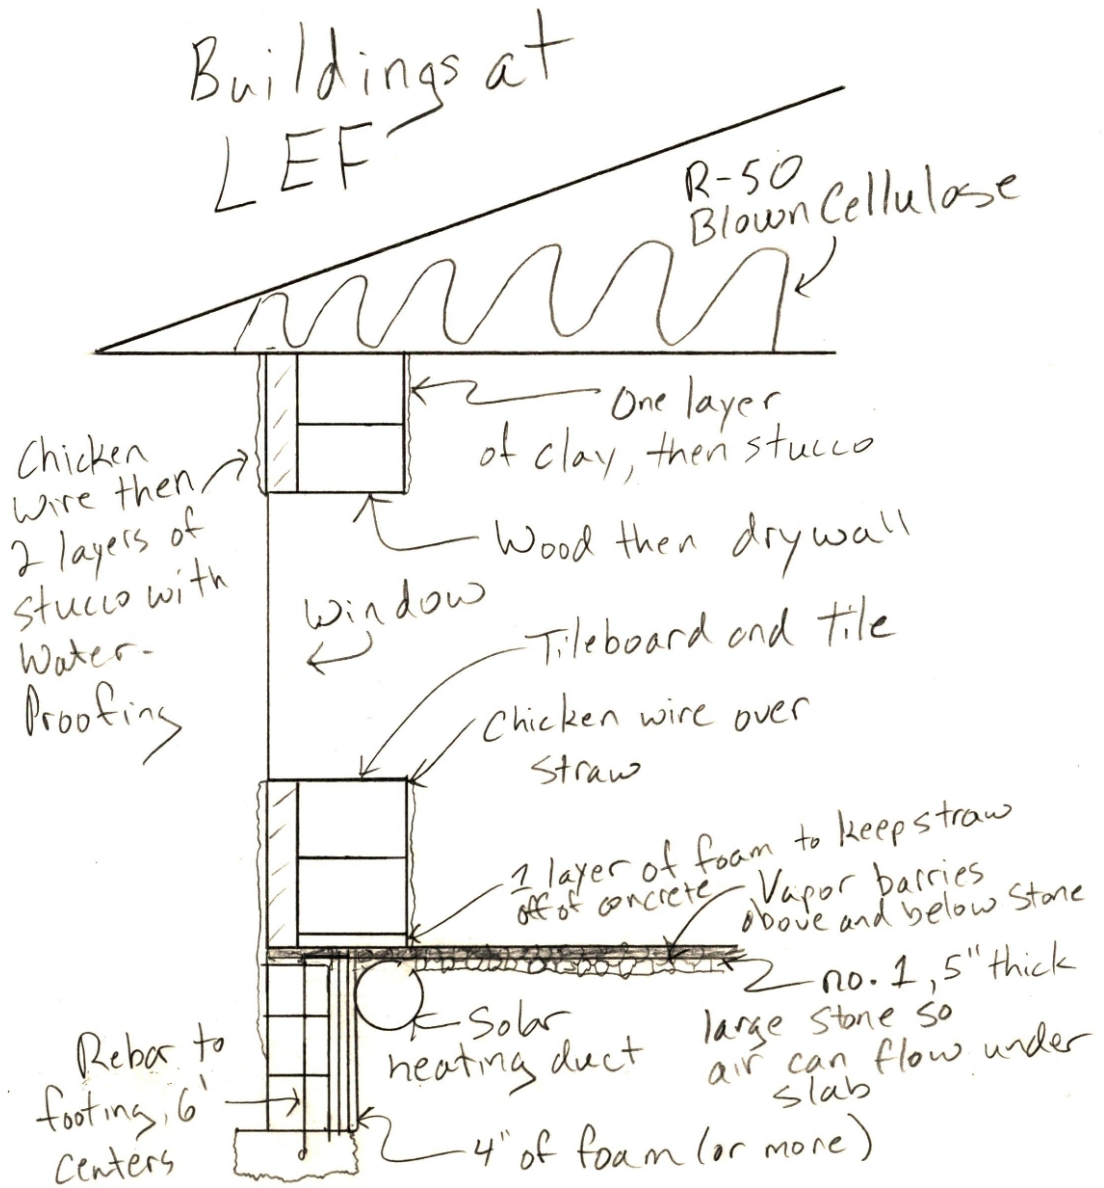 Buildings at
LEF
R-50
Blown Cellulose
One layer
of clay, then stucco
Chicken
wire then
2 layers of
stucco with
Water-
Proofing
Wood then drywall
Window
Tileboard and tile
Chicken wire over
straw
1 layer of foam to keep straw
off of concrete
Vapor barries
above and below stone
no. 1, 5" thick
large stone so
air can flow under
slab
Solar
heating duct
Rebar to
footing, 6'
centers
4" of foam (or more)